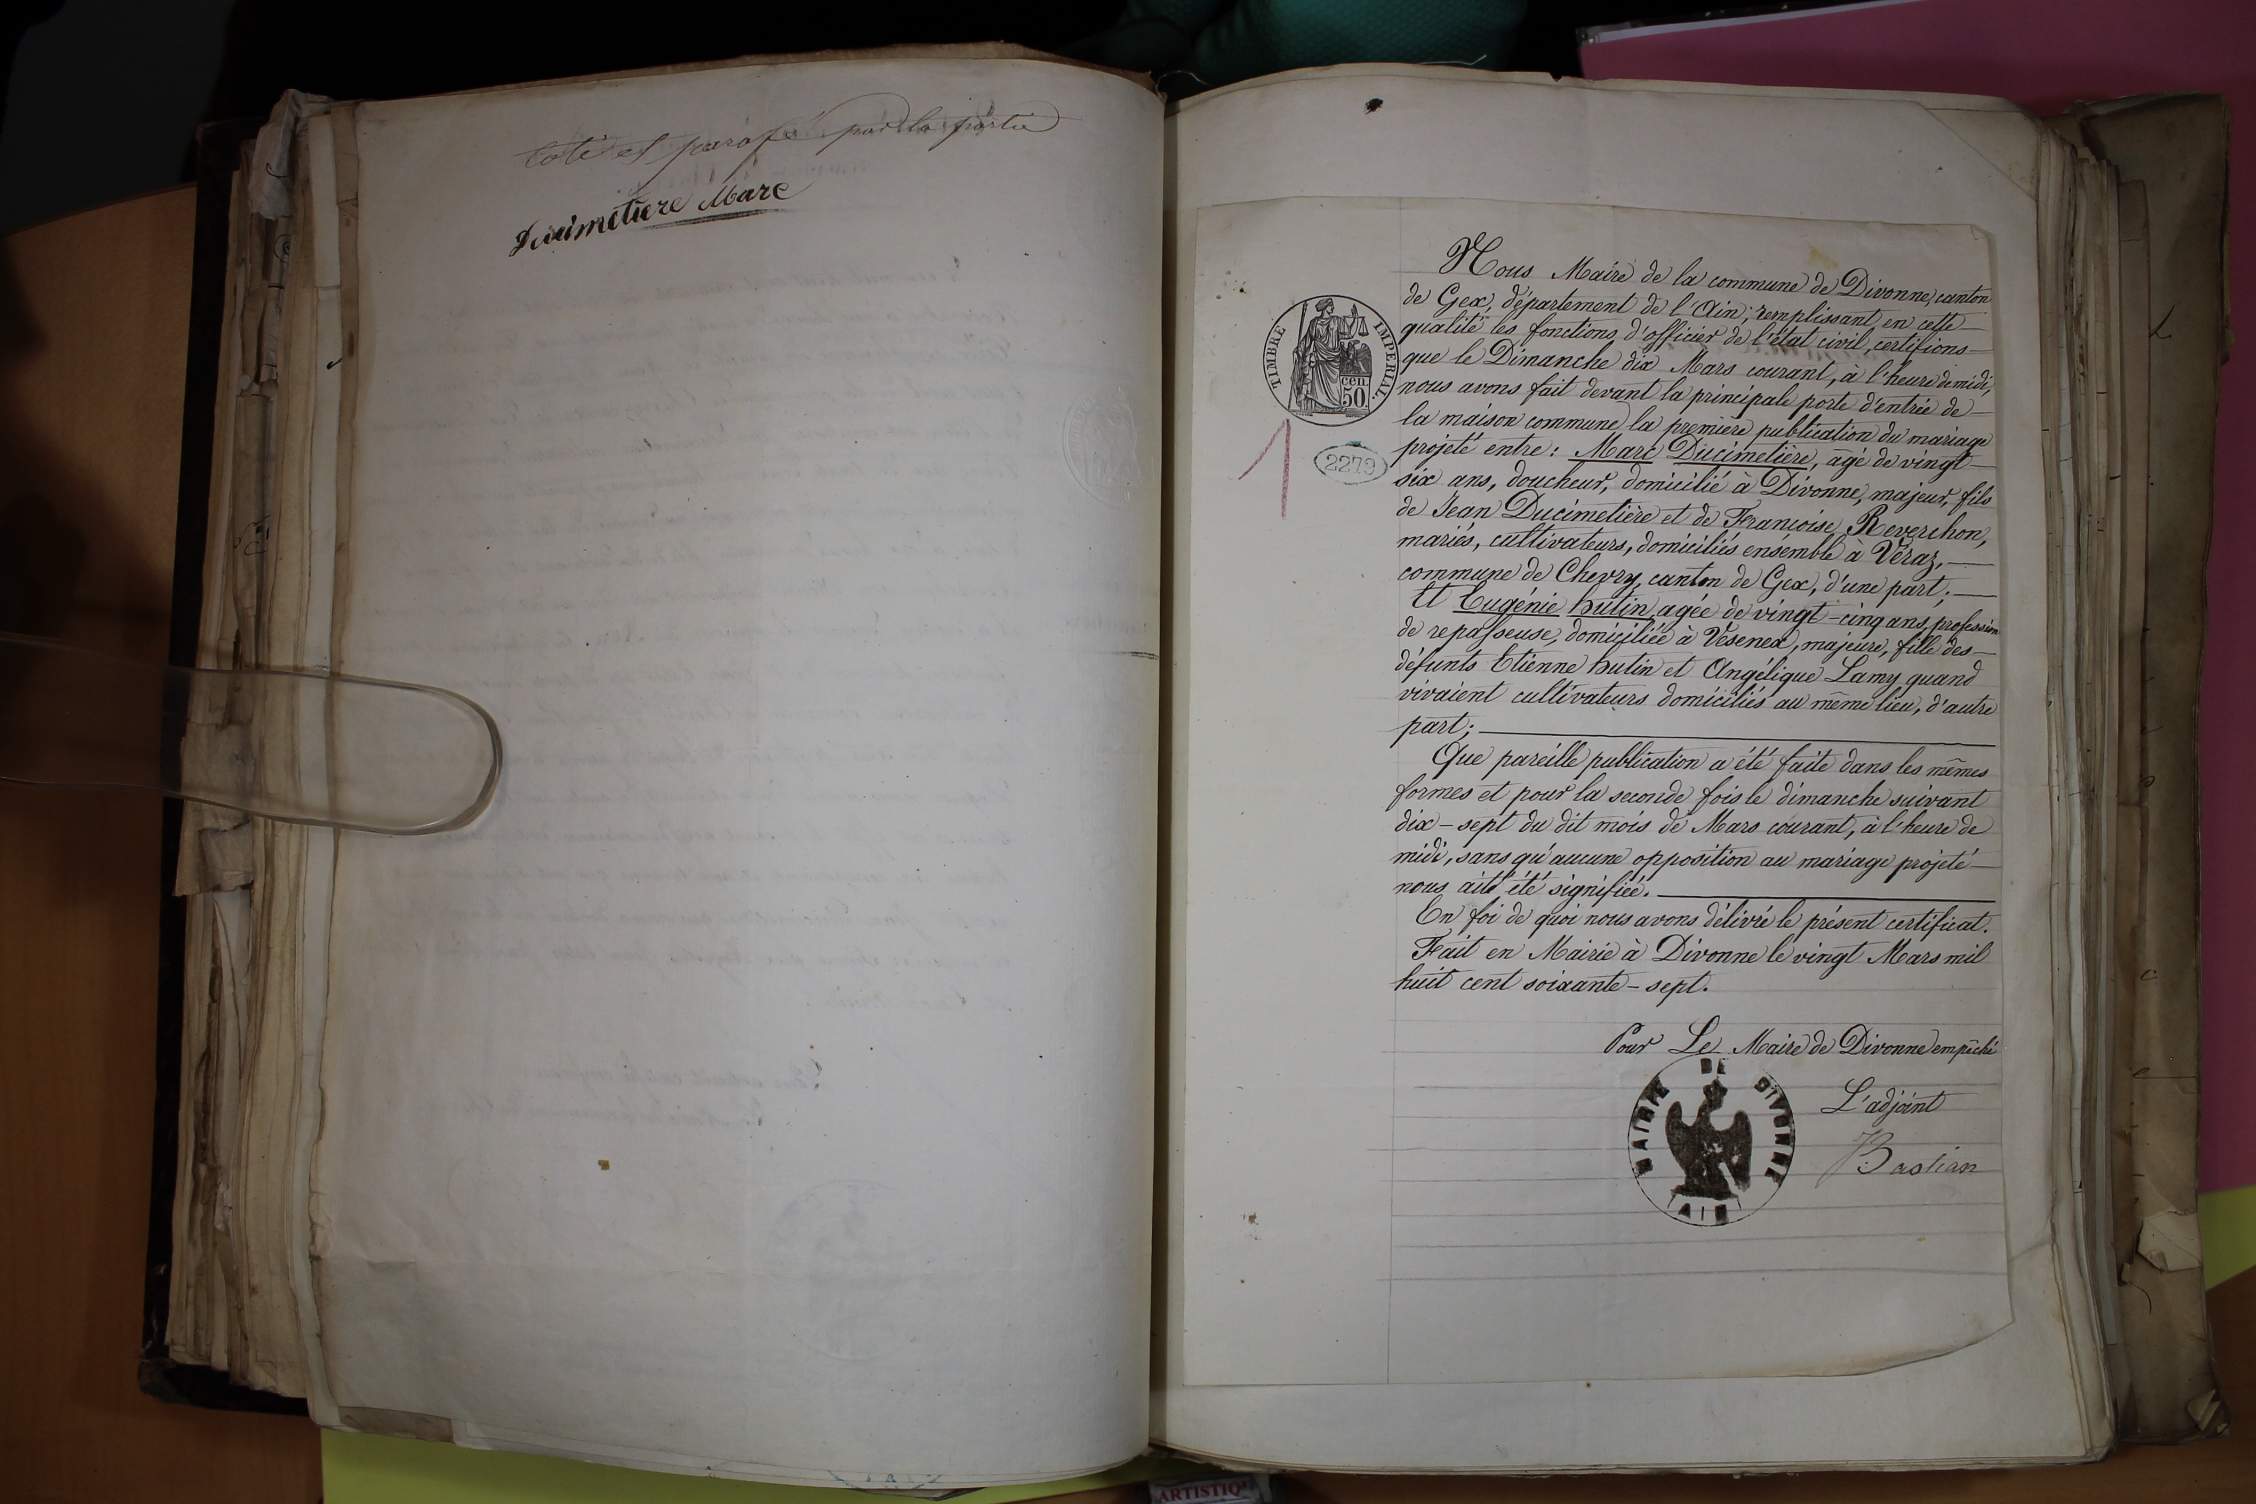 Coté et parafé par la partie
Ducimetiere Marc
Nous Maire de la commune de Divonne, canton
de Gex, département de l'Ain, remplissant en cette
qualité les fonctions d'officier de l'état civil, certifions
que le Dimanche dix Mars courant, à l'heure de midi,
nous avons fait devant la principale porte d'entrée de
la maison commune la première publication du mariage
projeté entre : Marc Ducimetière, âgé de vingt
six ans, doucheur, domicilié à Divonne, majeur, fils
de Jean Ducimetière et de Françoise Reverchon,
mariés, cultivateurs, domiciliés ensemble à Véraz,
commune de Chevry, canton de Gex, d'une part;
Et Eugénie hutin, agée de vingt-cinq ans, profession
de repasseuse, domiciliée à Vesenex, majeure, fille des
défunts Etienne hutin et Angélique Lamy quand
vivaient cultivateurs domiciliés au même lieu, d'autre
part;
Que pareille publication a été faite dans les mêmes
formes et pour la seconde fois le dimanche suivant
dix-sept du dit mois de Mars courant, à l'heure de
midi, sans qu'aucune opposition au mariage projeté
nous ait été signifiée.
En foi de quoi nous avons délivré le présent certificat.
Fait en Mairie à Divonne le vingt Mars mil
huit cent soixante-sept.
Pour Le Maire de Divonne empêché
L'adjoint
Bastian
TIMBRE IMPERIAL.
50 cen.
2279
1
MAIRIE DE DIVONNE
AIN
ARTISTIQ